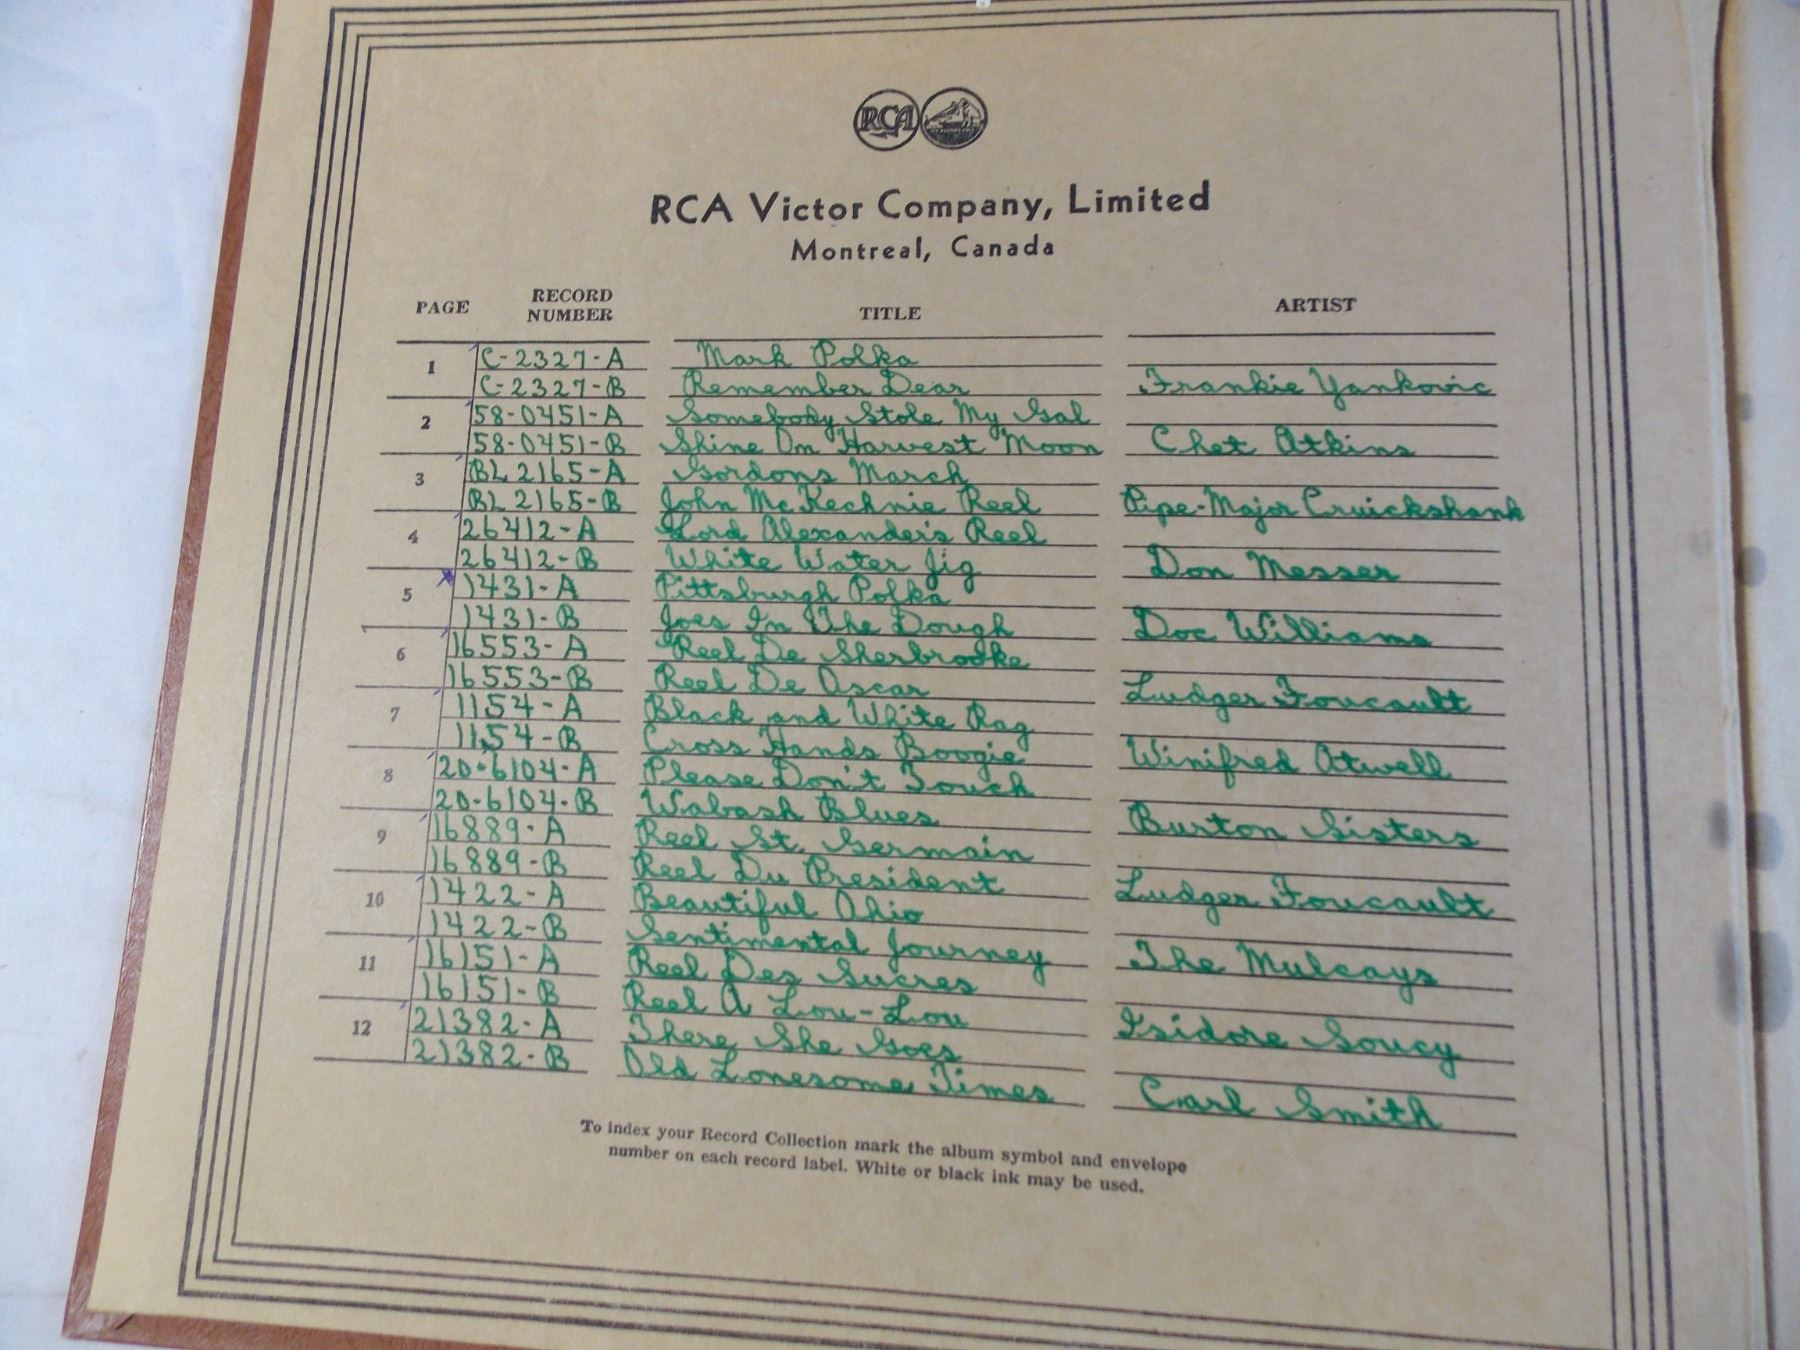 RCA
RCA Victor Company, Limited
Montreal, Canada
PAGE RECORD NUMBER TITLE ARTIST
1 C-2327-A Mark Polka
C-2327-B Remember Dear Frankie Yankovic
2 58-0451-A Somebody Stole My Gal
58-0451-B Shine On Harvest Moon Chet Atkins
3 BL 2165-A Gordons March
BL 2165-B John McKechnie Reel Pipe-Major Cruickshank
4 26412-A Lord Alexander's Reel
26412-B White Water Jig Don Messer
5 1431-A Pittsburgh Polka
1431-B Joes In The Dough Doc Williams
6 16553-A Reel De Sherbrooke
16553-B Reel De Oscar Ludger Foucault
7 1154-A Black and White Rag
1154-B Cross Hands Boogie Winifred Atwell
8 20-6104-A Please Don't Touch
20-6104-B Wabash Blues Burton Sisters
9 16889-A Reel St. Germain
16889-B Reel Du President Ludger Foucault
10 1422-A Beautiful Ohio
1422-B Sentimental Journey The Mulcays
11 16151-A Reel Des Sucres
16151-B Reel A Lou-Lou Isidore Soucy
12 21382-A There She Goes
21382-B Old Lonesome Times Carl Smith
To index your Record Collection mark the album symbol and envelope
number on each record label. White or black ink may be used.